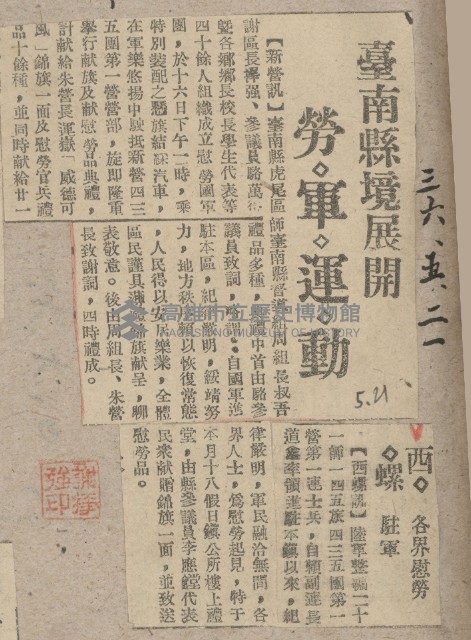 三六、五、二一
臺南縣境展開
勞◇軍◇運◇動
【新營訊】臺南縣虎尾區
謝區長强、參議員路萬
暨各鄉鄉長校長學生代表等
四十餘人組織成立慰勞國軍
團，於十六日下午二時，乘
特別裝配之懸旗結綵汽車，
在軍樂悠揚中駛抵新營四三
五團第一營營部，旋即隆重
舉行献旗及献慰勞品典禮，
計献給朱營長運嶽「威德可
風」錦旗一面及慰勞官兵禮
品十餘種，並同時献給廿一
師臺南縣督導組周組長叔吾
禮品多種，典禮中首由路參
議員致詞，略謂：自國軍進
駐本區，紀律嚴明，綏靖努
力，地方秩序賴以恢復常態
，人民得以安居樂業，全體
區民謹具薄禮旗献呈，聊
表敬意。後由周組長、朱營
長致謝詞，四時禮成。
5.21
高雄市立歷史博物館
KAOHSIUNG MUSEUM OF HISTORY
西◇螺◇
各界慰勞
駐軍
【西螺訊】陸軍整編二十
一師一四五旅四三五團第一
營第一連士兵，自賴副連長
道鑫率領進駐本鎮以來，紀
律嚴明，軍民融洽無間，各
界人士，爲慰勞起見，特于
本月十八假日鎮公所樓上禮
堂，由縣參議員李應鏜代表
民衆献贈錦旗一面，並致送
慰勞品。